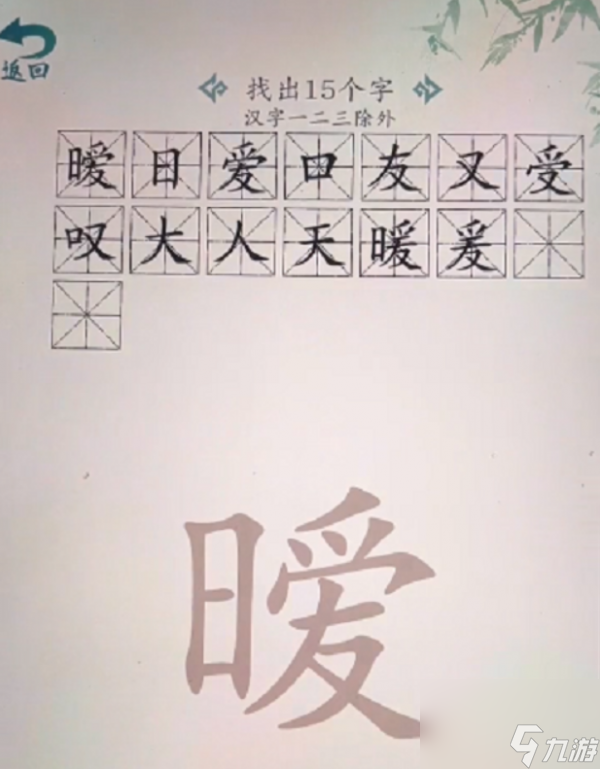 返回
找出15个字
汉字一二三除外
暧日爱曰友又受
叹大人天暖爰
暧
九游